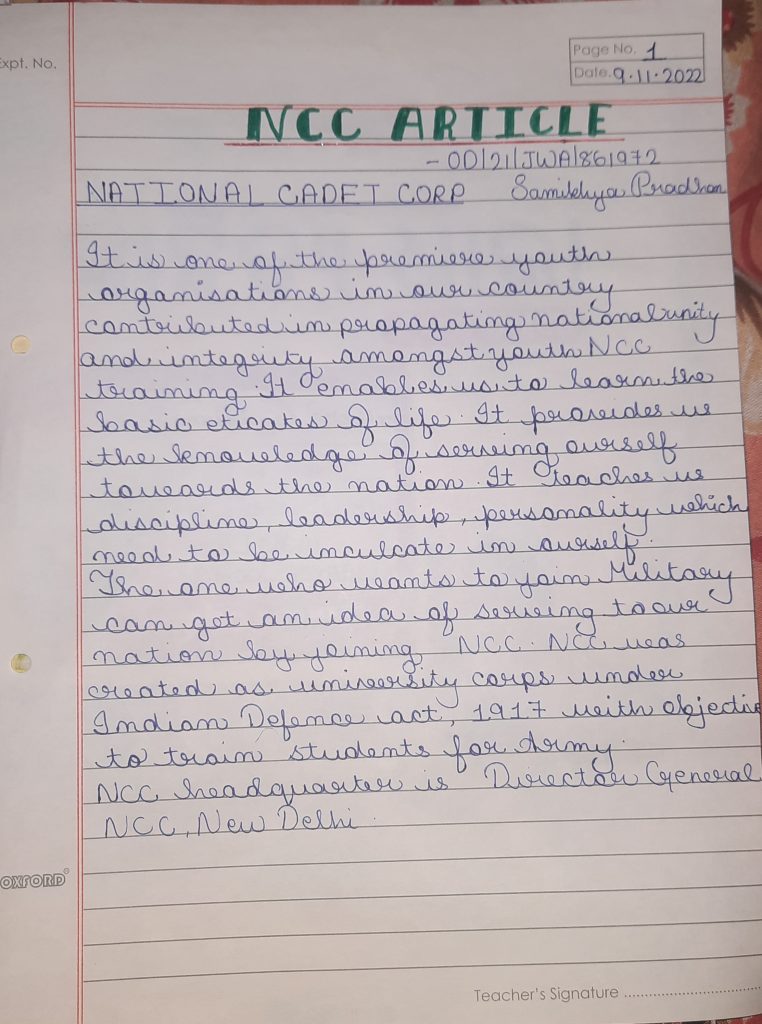 Expt. No.
Page No. 1
Date. 9.11.2022
NCC ARTICLE
- OD/21/JWA/861972
NATIONAL CADET CORP Samikhya Pradhan
It is one of the premiere youth
organisations in our country
contributed in propagating national unity
and integrity amongst youth NCC
training. It enables us to learn the
basic eticates of life. It provides us
the knowledge of serving ourself
towards the nation. It teaches us
discipline, leadership, personality which
need to be inculcate in ourself.
The one who wants to join Military
can get an idea of serving to our
nation by joining NCC. NCC was
created as university corps under
Indian Defence act, 1917 with objective
to train students for Army.
NCC headquarter is Director General
NCC, New Delhi.
OXFORD
Teacher's Signature